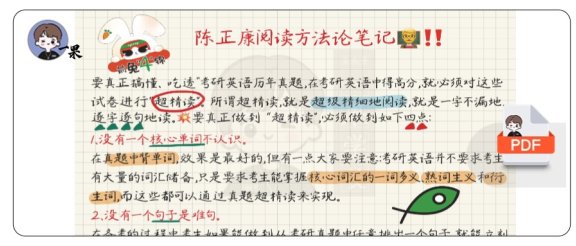 一果
陈正康阅读方法论笔记👨‍🏫‼️
要真正搞懂、吃透"考研英语历年真题,在考研英语中得高分,就必须对这些
试卷进行"超精读"。所谓超精读,就是超级精细地阅读,就是一字不漏地.
逐字逐句地读。💥要真正做到"超精读",必须做到如下四点:
1.没有一个核心单词不认识。
在真题中背单词,效果是最好的,但有一点大家要注意:考研英语并不要求考生
有大量的词汇储备,只是要求考生能掌握核心词汇的一词多义、熟词生义和衍
生词,而这些都可以通过真题超精读来实现。
2.没有一个句子是难句。
PDF